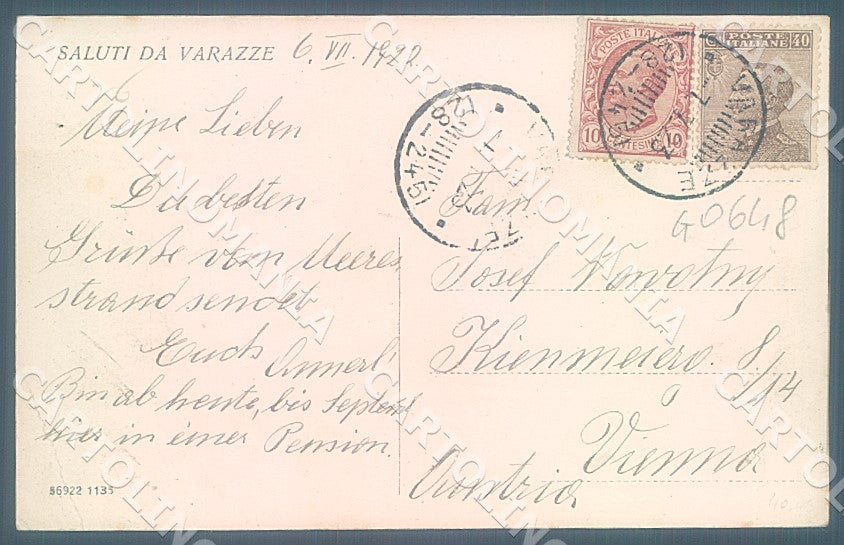 SALUTI DA VARAZZE 6. VII. 1922
Meine Lieben
Die besten
Grüße vom Meeres
strand sendet
Euch Annerl
Bin ab heute, bis Septem
ber in einer Pension.
56922 1135
POSTE ITALIANE
10 CENTESIMI 10
POSTE ITALIANE 40
VARAZZE
(28-246)
G0648
Fam.
Josef Nowotny
Kienmeierg. 8/14
Vienna
Austria
CARTOLINOMANIA